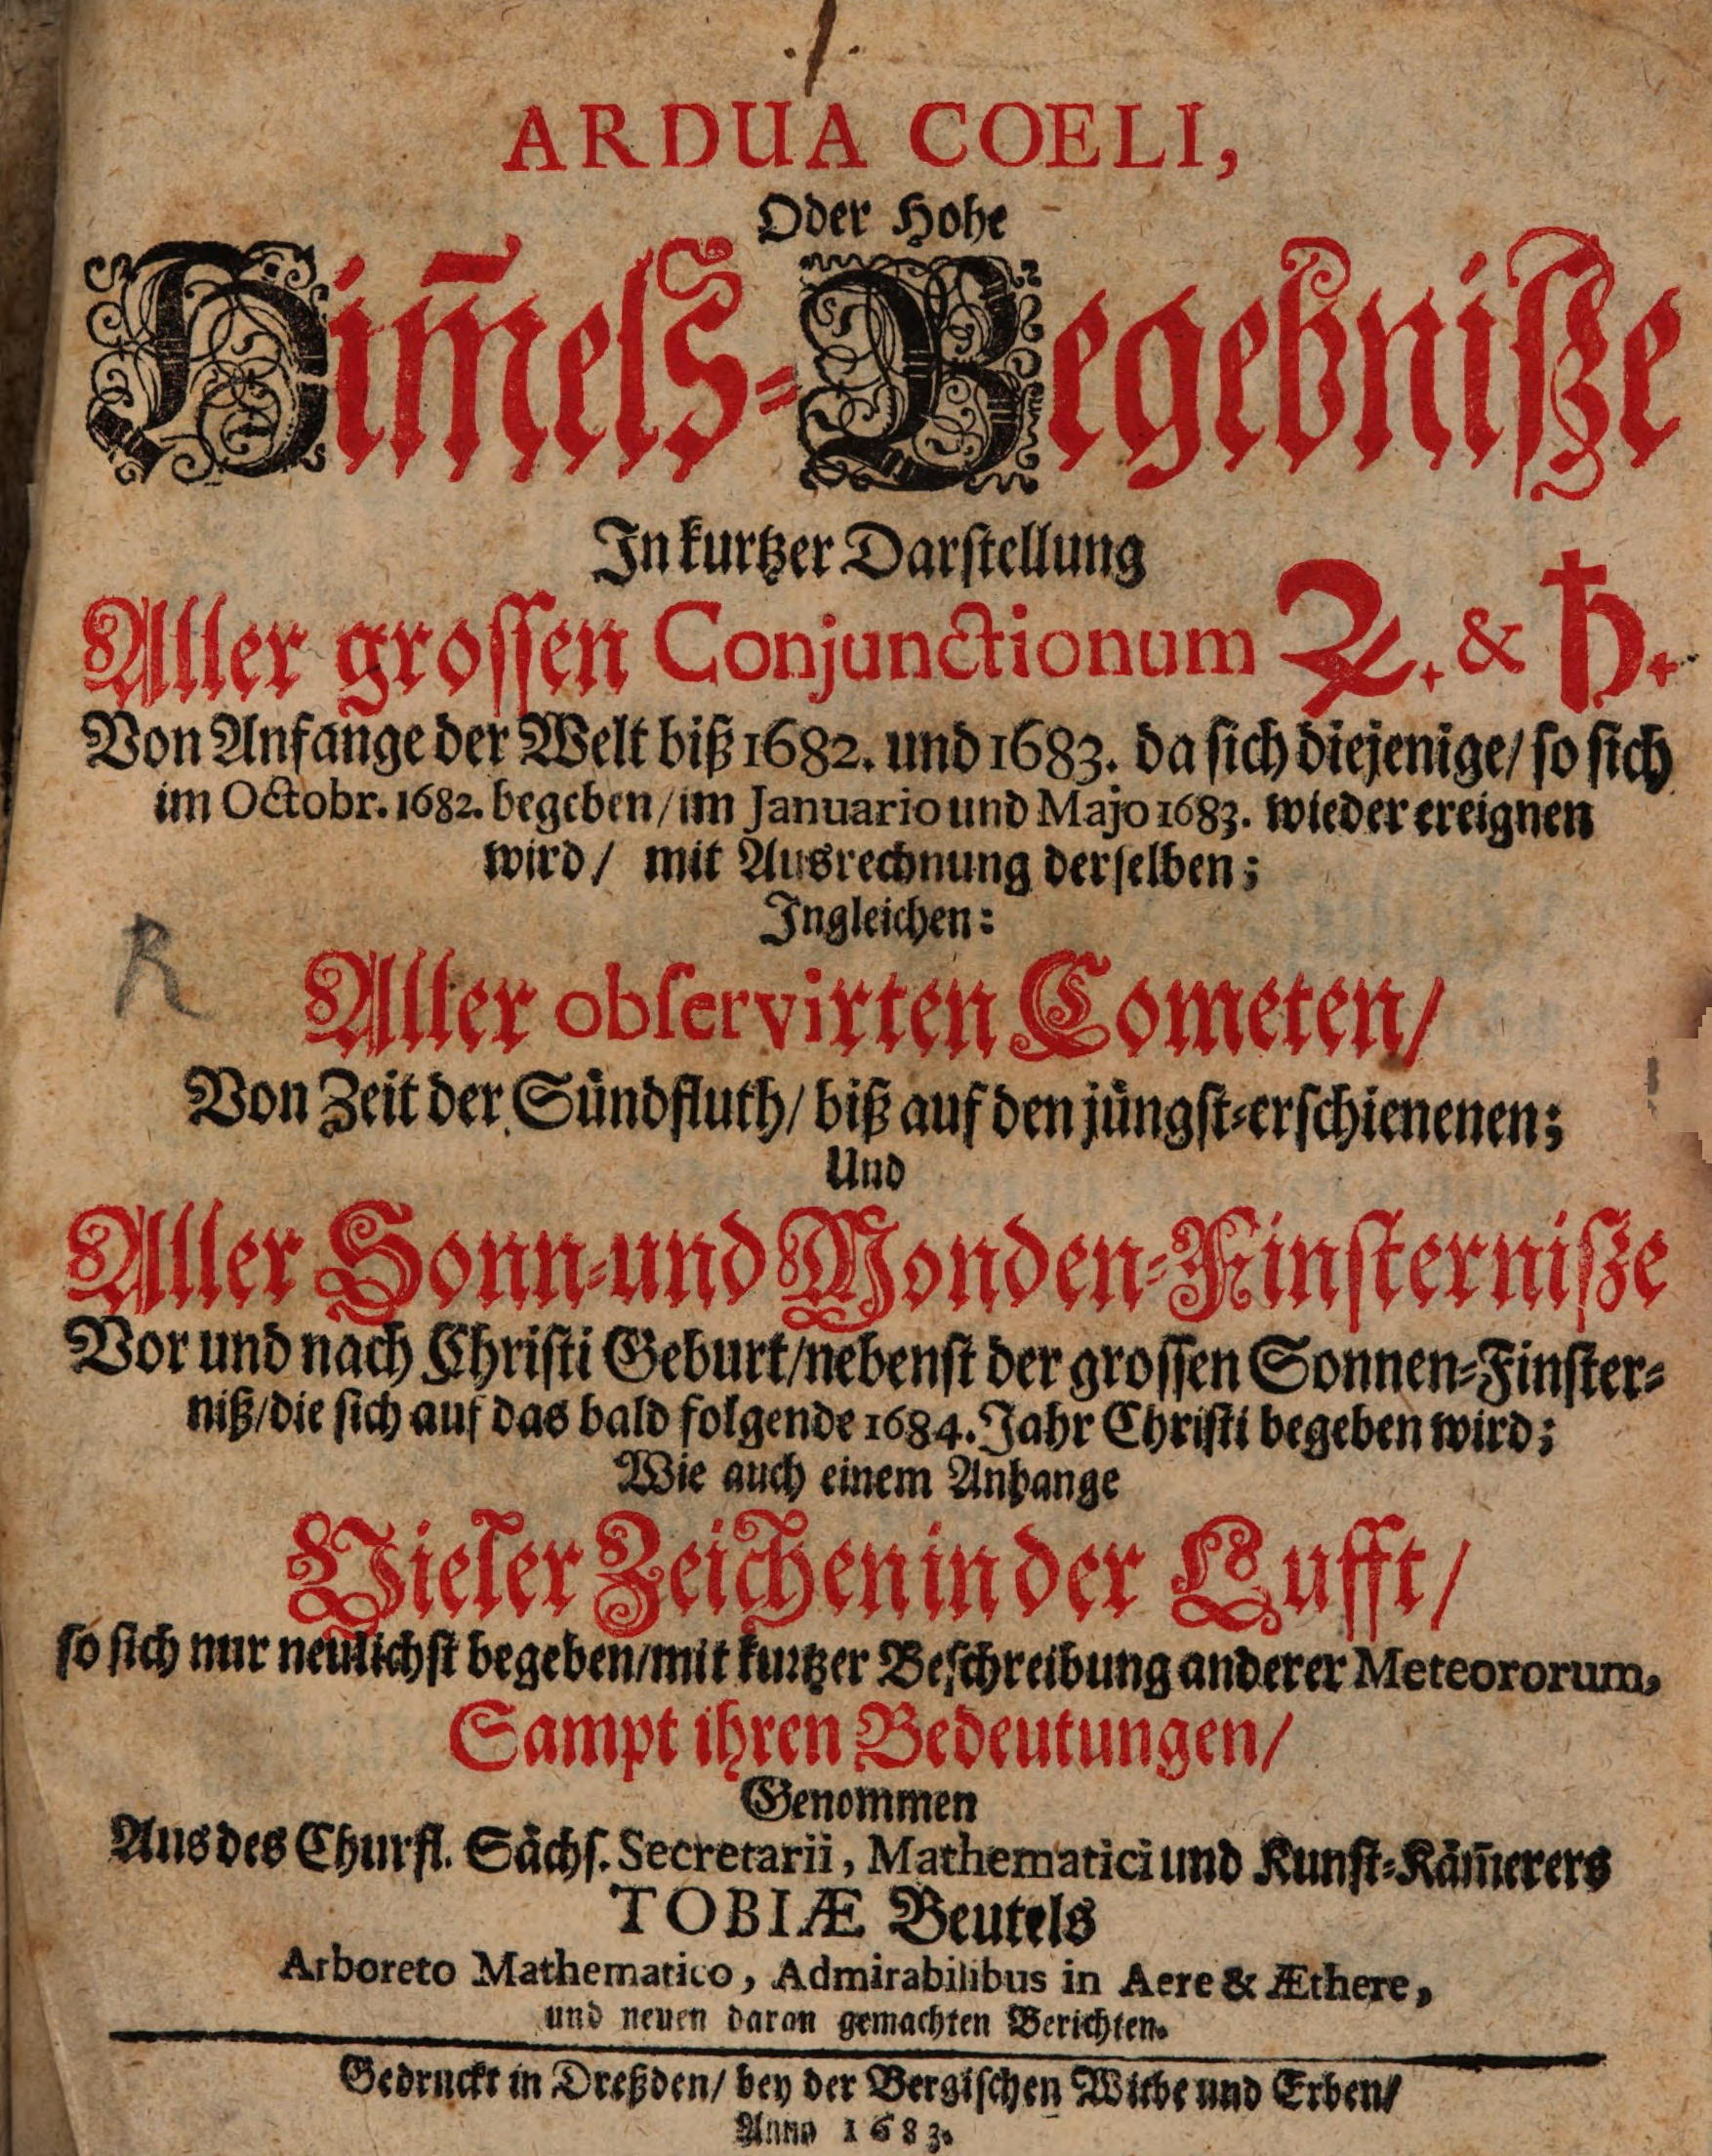 ARDUA COELI,
Oder Hohe
Him̄els-Begebniſze
In kurtzer Darſtellung
Aller groſſen Conjunctionum ♃. & ♄.
Von Anfange der Welt biß 1682. und 1683. da ſich diejenige/ ſo ſich
im Octobr. 1682. begeben/ im Januario und Majo 1683. wieder ereignen
wird/ mit Ausrechnung derſelben;
Ingleichen:
R
Aller obſervirten Cometen/
Von Zeit der Sündfluth/ biß auf den jüngſt-erſchienenen;
Und
Aller Sonn-und Monden-Finſterniſze
Vor und nach Chriſti Geburt/nebenſt der groſſen Sonnen-Finſter-
niß/die ſich auf das bald folgende 1684. Jahr Chriſti begeben wird;
Wie auch einem Anhange
Vieler Zeichen in der Lufft/
ſo ſich nur neulichſt begeben/mit kurtzer Beſchreibung anderer Meteororum,
Sampt ihren Bedeutungen/
Genommen
Aus des Churfl. Sächſ. Secretarii, Mathematici und Kunſt-Käm̄erers
TOBIÆ Beutels
Arboreto Mathematico, Admirabilibus in Aere & Æthere,
und neuen daran gemachten Berichten.
Gedruckt in Dreßden/ bey der Bergiſchen Witbe und Erben/
Anno 1683.